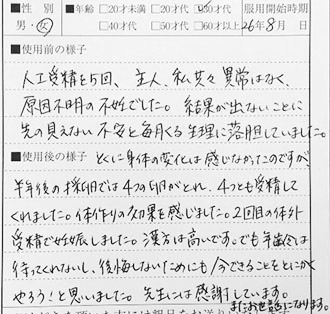 ■性 別 ■年齢 □20才未満 □20才代 ☑30才代 服用開始時期
男・女 □40才代 □50才代 □60才以上 26年8月 日
■使用前の様子
人工受精を5回、主人、私共々異常はなく、
原因不明の不妊でした。結果が出ないことに
先の見えない不安と毎月くる生理に落胆していました。
■使用後の様子 とくに身体の変化は感じなかったのですが
半年後の採卵では4つの卵がとれ、4つとも受精して
くれました。体作りの効果を感じました。2回目の体外
受精で妊娠しました。漢方は高いです。でも年齢は
待ってくれないし、後悔しないためにも今できることをとにかく
やろう!と思いました。先生には感謝しています。
またお世話になります。